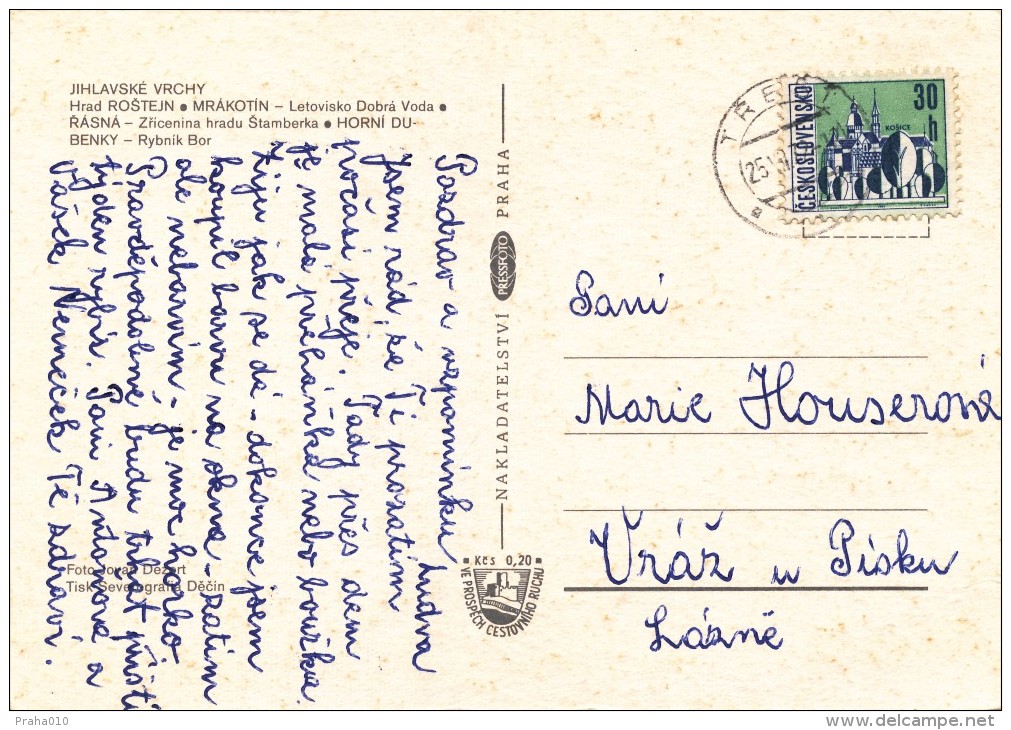 JIHLAVSKÉ VRCHY
Hrad ROŠTEJN ● MRÁKOTÍN – Letovisko Dobrá Voda ●
ŘÁSNÁ – Zřícenina hradu Štamberka ● HORNÍ DU-
BENKY – Rybník Bor
Pozdrav a vzpomínku Ludva
Jsem rád, že Ti prozatím
počasí přeje. Tady přes den
je malá přeháňka nebo bouřka.
Žiju jak se dá - dokonce jsem
koupil barvu na okna - zatím
ale nebarvím - je moc horko
Pravděpodobně budu trčet příští
týden rybů. Paní Antonová a
Vašek Němeček Tě zdraví.
Foto Jovan Dezort
Tisk Severografia Děčín
NAKLADATELSTVÍ PRESSFOTO PRAHA
Kčs 0,20
VE PROSPĚCH CESTOVNÍHO RUCHU
TŘEŠŤ
25.V
ČESKOSLOVENSKO
30 h
KOŠICE
Paní
Marie Houserová
Vráž u Písku
Lázně
Praha010
delcampe.net